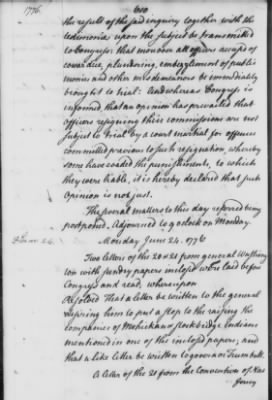 1776. 600
the result of the said enquiry together with the
testimonies upon the subject be transmitted
to Congress that moreover all officers accused of
cowardice, plundering, embezzlement of public
monies and other misdemeanors be immediately
brought to trial: And whereas Congress is
informed, that an opinion has prevailed that
officers resigning their commissions are not
subject to trial by a court martial for offences
committed previous to such resignation, whereby
some have evaded the punishments, to which
they were liable, it is hereby declared that such
Opinion is not just.
The several matters to this day referred being
postponed. Adjourned to 9 oClock on Monday.
June 24.
Monday June 24. 1776
Two letters of the 20 & 21 from general Washing
ton with sundry papers inclosed were laid before
Congress and read, whereupon
Resolved That a letter be written to the general
desiring him to put a stop to the raising the
companies of Mohickan & Stockbridge Indians
mentioned in one of the inclosed papers, and
that a like letter be written to governor Trumbull.
A letter of the 21 from the Convention of New
Jersey